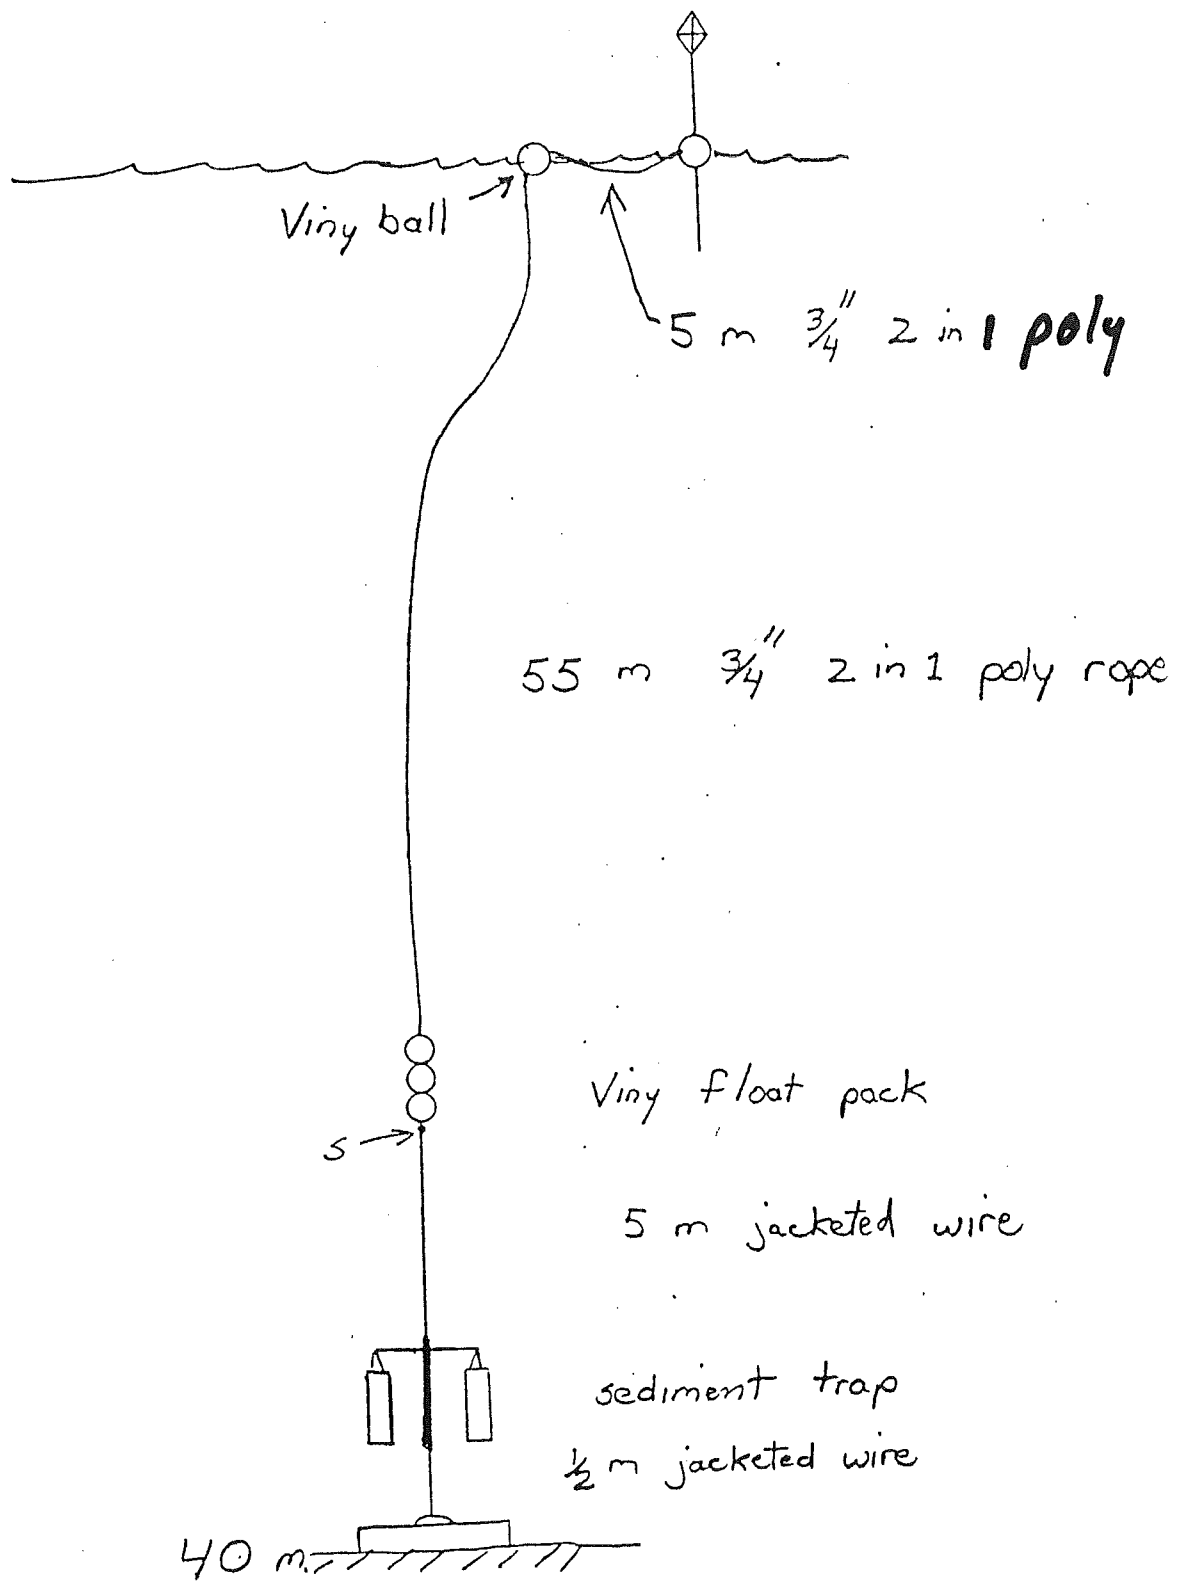 Viny ball
5 m 3/4" 2 in 1 poly
55 m 3/4" 2 in 1 poly rope
Viny float pack
S
5 m jacketed wire
sediment trap
1/2 m jacketed wire
40 m.